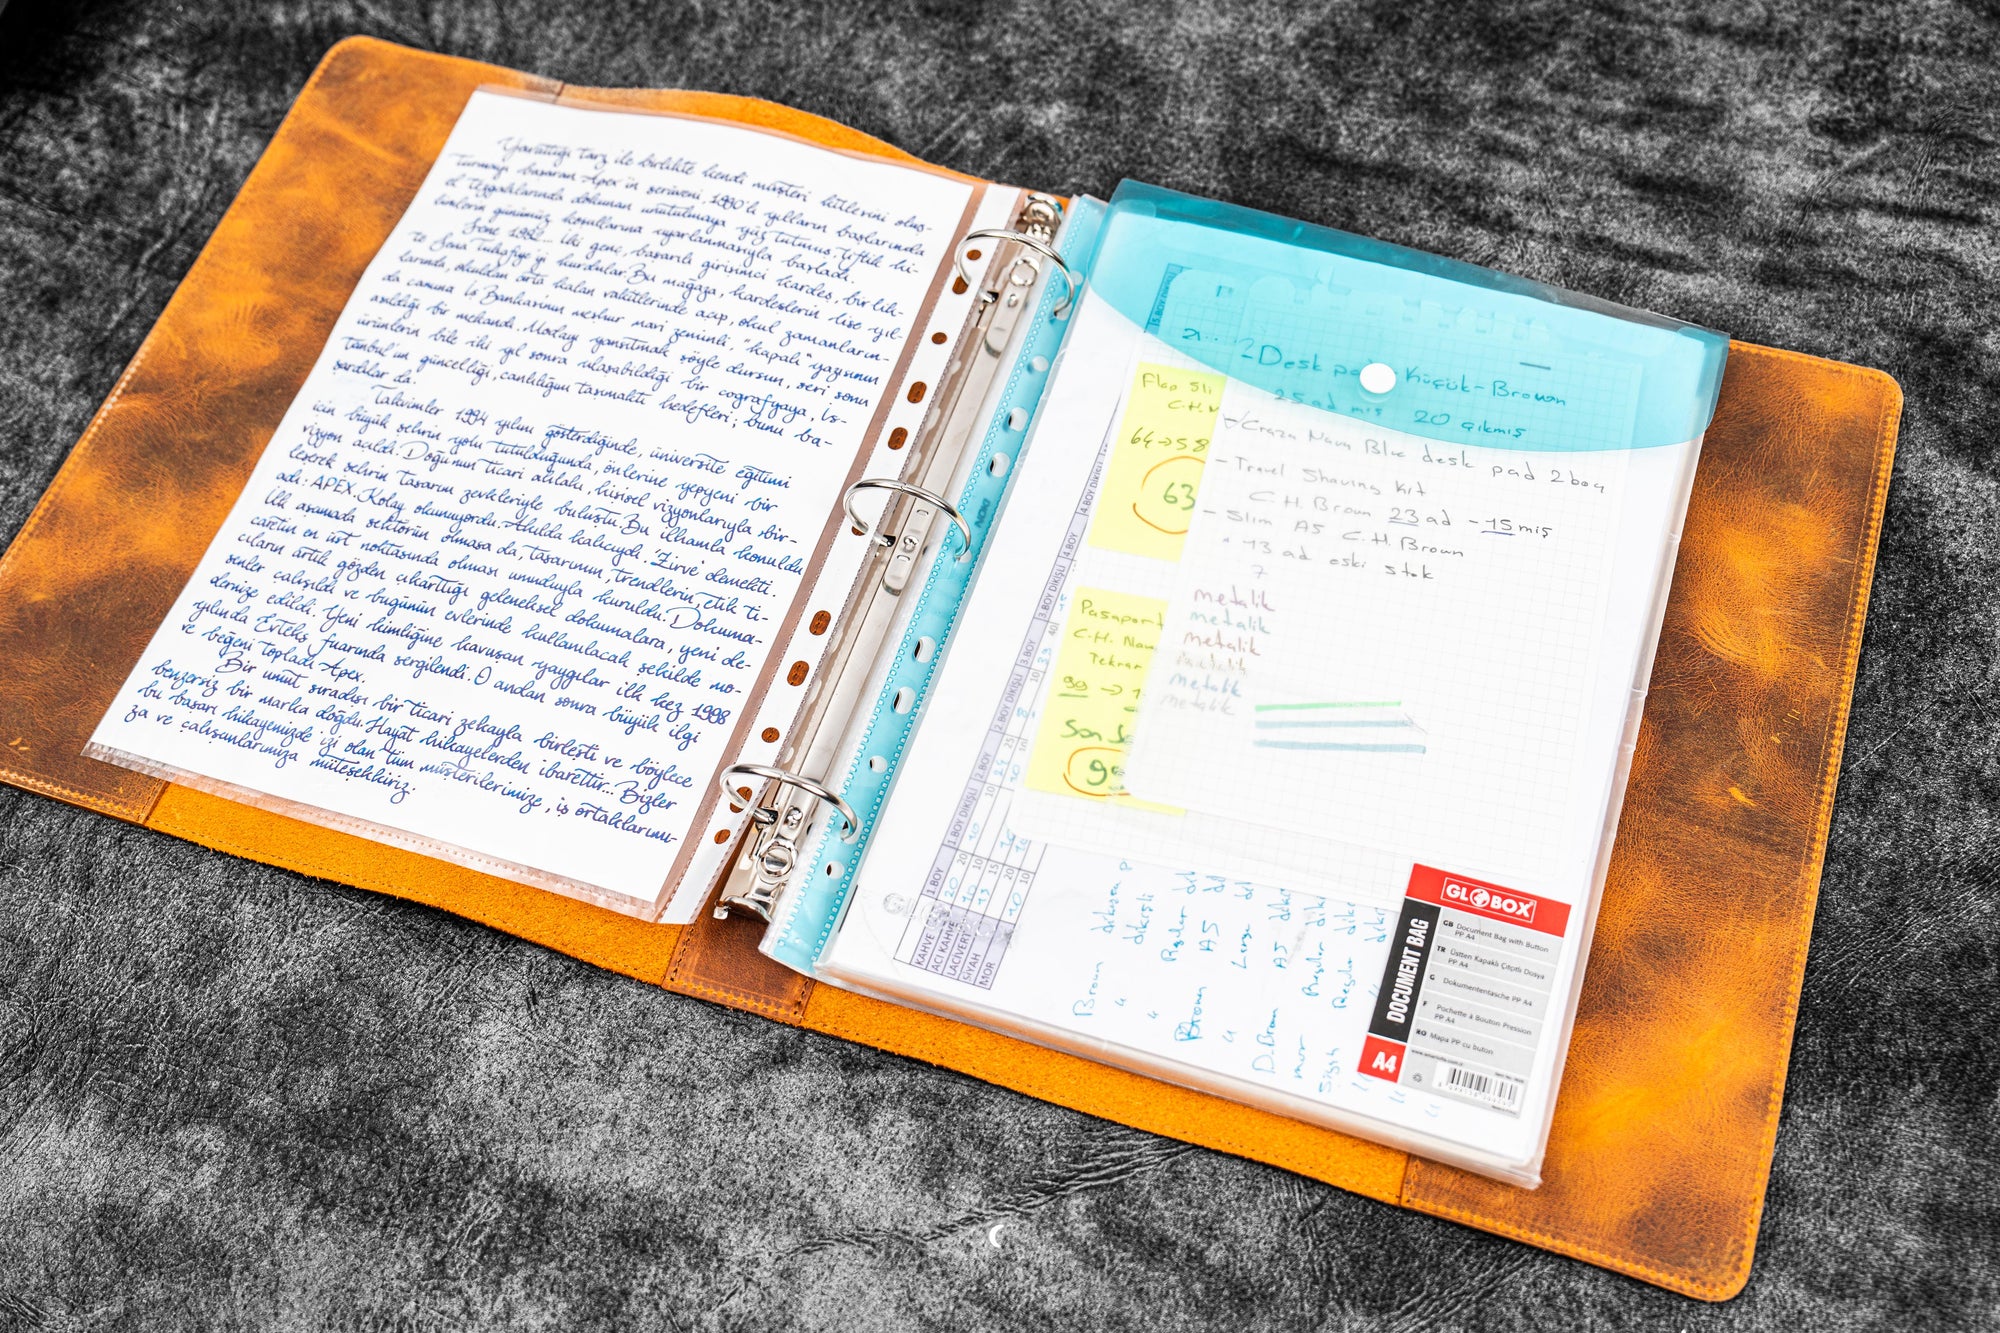 Yarattığı tarz ile birlikte kendi müşteri kitlerini oluş-
turmayı başaran Apex'in serüveni, 1990'lı yılların başlarında
el tezgahlarında dokunan unutulmaya yüz tutmuş. Tiftik ki-
limlerin günümüz koşullarına uyarlanmasıyla başladı.
Sene 1992... İki genç, başarılı girişimci kardeş, birlik-
te Sena Tuhafiye'yi kurdular. Bu mağaza, kardeşlerin lise yıl-
larında, okuldan arta kalan vakitlerinde açıp, okul zamanların-
da camına İş Bankası'nın meşhur mavi zeminli, "kapalı" yayısının
asıldığı bir mekandı. Modayı yansıtmak şöyle dursun, seri, sonu
ürünlerin bile iki yıl sonra ulaşabildiği bir coğrafyaya, İs-
tanbul'un güncelliği, canlılığını taşımaktı hedefleri; bunu ba-
şardılar da.
Takvimler 1994 yılını gösterdiğinde, üniversite eğitimi
için büyük şehrin yolu tutulduğunda, önlerine yepyeni bir
vizyon açıldı. Doğunun ticari ahlakı, kişisel vizyonlarıyla bir-
leşerek şehrin tasarım zevkleriyle buluştu. Bu ilhamla konuldu
adı: APEX. Kolay okunuyordu. Akılda kalıcıydı. 'Zirve' demekti.
İlk aşamada sektörün olmasa da, tasarımın, trendlerin, etik ti-
caretin en üst noktasında olması umuduyla kuruldu. Dokuma-
cıların artık gözden çıkarttığı geleneksel dokumalara, yeni de-
senler çalışıldı ve bugünün evlerinde kullanılacak şekilde mo-
dernize edildi. Yeni kimliğine kavuşan yaygılar ilk kez 1998
yılında Evteks fuarında sergilendi. O andan sonra büyük ilgi
ve beğeni topladı Apex.
Bir umut sıradışı bir ticari zekayla birleşti ve böylece
benzersiz bir marka doğdu. Hayat hikayelerden ibarettir... Bizler
bu başarı hikayemizde izi olan tüm müşterilerimize, iş ortaklarımı-
za ve çalışanlarımıza müteşekkiriz.
2 Desk pad Küçük-Brown
25 ad miş 20 çıkmış
Craza Navy Blue desk pad 2 boy
- Travel Shaving Kit
C.H. Brown 23 ad - 15 miş
- Slim A5 C.H. Brown
13 ad eski stok
7
metalik
metalik
metalik
metalik
metalik
metalik
Flap
C.H.
64→58
63
Pasaport
C.H.
Tekrar
90 →
Son
1.BOY
1.BOY DİKİŞLİ
2.BOY
2.BOY DİKİŞLİ
3.BOY
3.BOY DİKİŞLİ
4.BOY
KAHVE
ACI KAHVE
LACİVERT
SİYAH
MOR
Brown
dikişli
Brown A5
Large
D.Brown A5
mor
Siyah
GLOBOX
DOCUMENT BAG
A4
GB Document Bag with Button PP A4
TR Üstten Kapaklı Çıtçıtlı Dosya PP A4
G Dokumententasche PP A4
F Pochette à Bouton Pression PP A4
RO Mapa PP cu buton